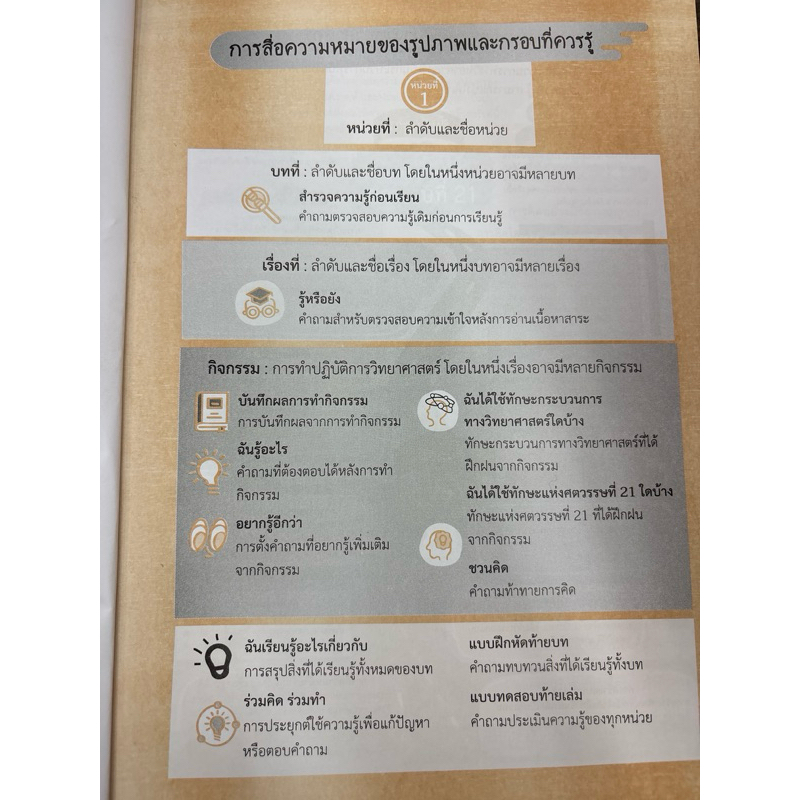 การสื่อความหมายของรูปภาพและกรอบที่ควรรู้
หน่วยที่
1
หน่วยที่ : ลำดับและชื่อหน่วย
บทที่ : ลำดับและชื่อบท โดยในหนึ่งหน่วยอาจมีหลายบท
สำรวจความรู้ก่อนเรียน
คำถามตรวจสอบความรู้เดิมก่อนการเรียนรู้
เรื่องที่ : ลำดับและชื่อเรื่อง โดยในหนึ่งบทอาจมีหลายเรื่อง
รู้หรือยัง
คำถามสำหรับตรวจสอบความเข้าใจหลังการอ่านเนื้อหาสาระ
กิจกรรม : การทำปฏิบัติการวิทยาศาสตร์ โดยในหนึ่งเรื่องอาจมีหลายกิจกรรม
บันทึกผลการทำกิจกรรม
การบันทึกผลจากการทำกิจกรรม
ฉันรู้อะไร
คำถามที่ต้องตอบได้หลังการทำ
กิจกรรม
อยากรู้อีกว่า
การตั้งคำถามที่อยากรู้เพิ่มเติม
จากกิจกรรม
ฉันได้ใช้ทักษะกระบวนการ
ทางวิทยาศาสตร์ใดบ้าง
ทักษะกระบวนการทางวิทยาศาสตร์ที่ได้
ฝึกฝนจากกิจกรรม
ฉันได้ใช้ทักษะแห่งศตวรรษที่ 21 ใดบ้าง
ทักษะแห่งศตวรรษที่ 21 ที่ได้ฝึกฝน
จากกิจกรรม
ชวนคิด
คำถามท้าทายการคิด
ฉันเรียนรู้อะไรเกี่ยวกับ
การสรุปสิ่งที่ได้เรียนรู้ทั้งหมดของบท
ร่วมคิด ร่วมทำ
การประยุกต์ใช้ความรู้เพื่อแก้ปัญหา
หรือตอบคำถาม
แบบฝึกหัดท้ายบท
คำถามทบทวนสิ่งที่ได้เรียนรู้ทั้งบท
แบบทดสอบท้ายเล่ม
คำถามประเมินความรู้ของทุกหน่วย